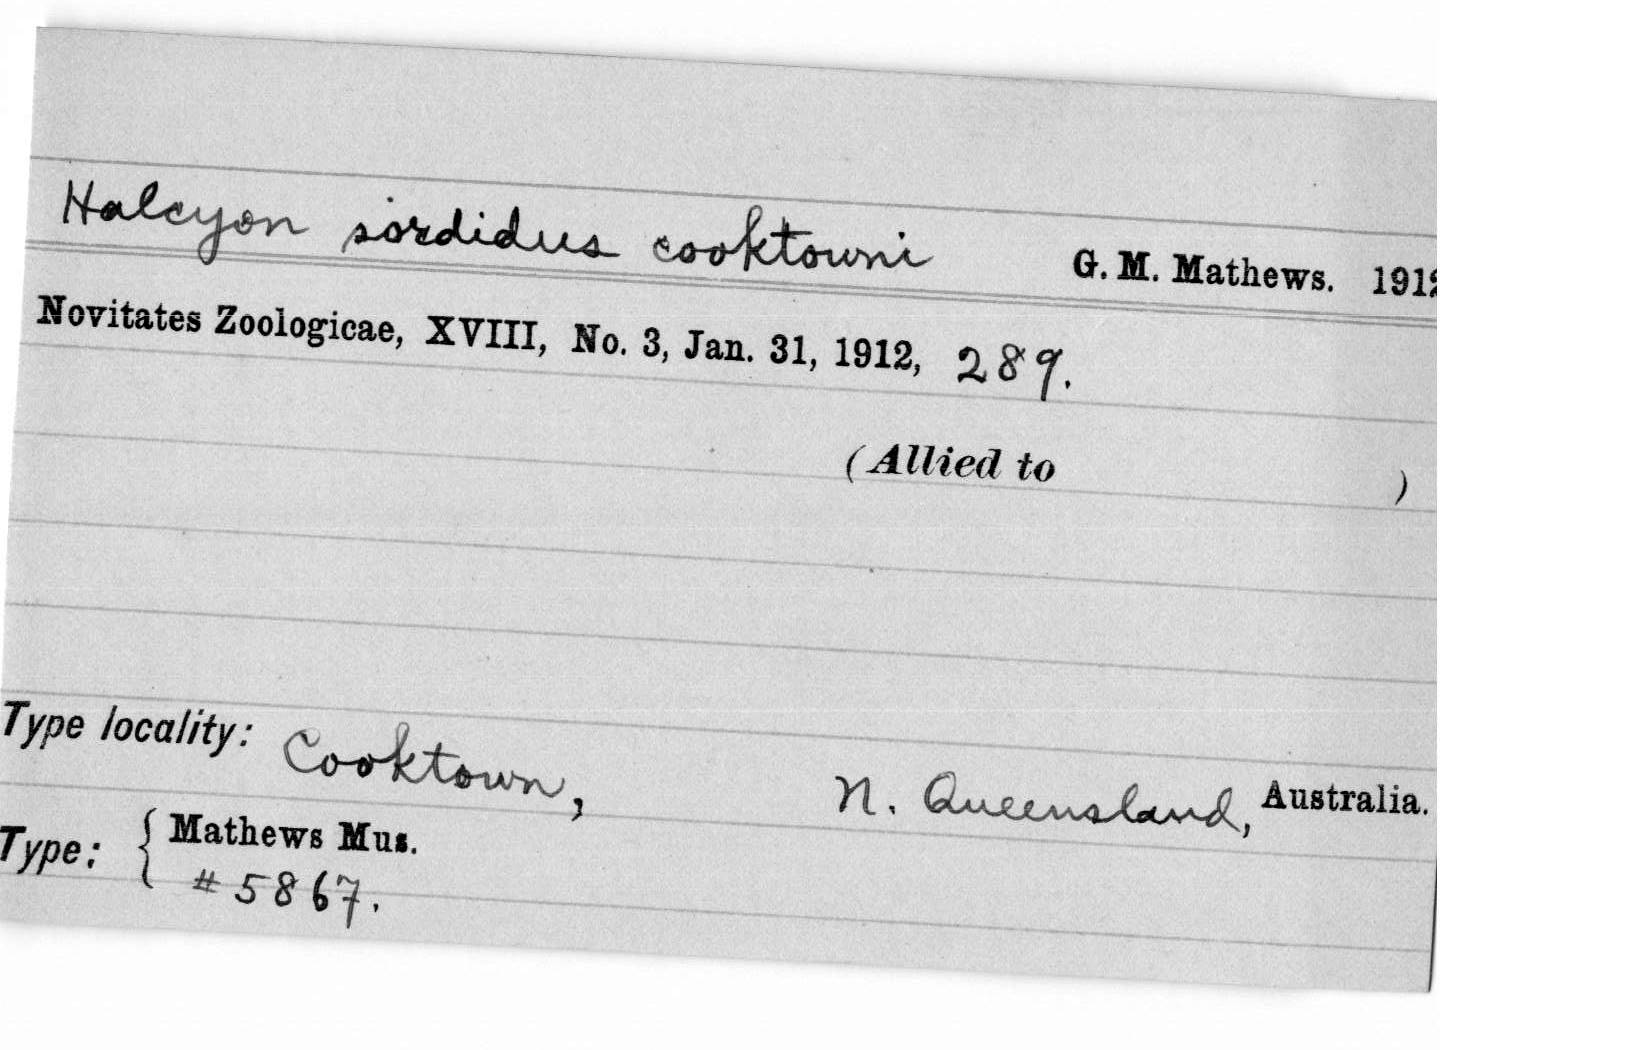 Halcyon sordidus cooktowni G. M. Mathews. 1912
Novitates Zoologicae, XVIII, No. 3, Jan. 31, 1912, 289.
(Allied to )
Type locality: Cooktown, N. Queensland, Australia.
Type: { Mathews Mus.
# 5867.